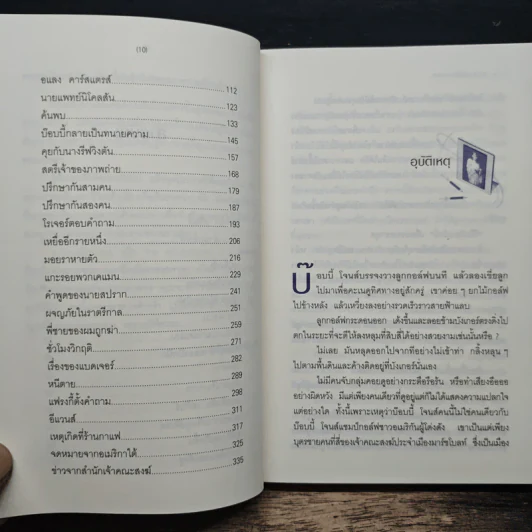 (10)
อแลง คาร์สแตรส์ 112
นายแพทย์นิโคลสัน 123
ค้นพบ 133
บ๊อบบี้กลายเป็นทนายความ 145
คุยกับนางรีฟวิงตัน 157
สตรีเจ้าของภาพถ่าย 168
ปรึกษากันสามคน 179
ปรึกษากันสองคน 187
โรเจอร์ตอบคำถาม 193
เหยื่ออีกรายหนึ่ง 206
มอยราหายตัว 216
แกะรอยพวกเคแมน 229
คำพูดของนายสปราก 241
ผจญภัยในราตรีกาล 251
พี่ชายของผมถูกฆ่า 259
ชั่วโมงวิกฤติ 271
เรื่องของแบดเจอร์ 282
หนีตาย 289
แฟรงกี้ตั้งคำถาม 298
อีแวนส์ 311
เหตุเกิดที่ร้านกาแฟ 317
จดหมายจากอเมริกาใต้ 325
ข่าวจากสำนักเจ้าคณะสงฆ์ 335
อุบัติเหตุ
บ๊อบบี้ โจนส์บรรจงวางลูกกอล์ฟบนที แล้วลองเขี่ยลูก
ไปมาเพื่อคะเนดูทิศทางอยู่สักครู่ เขาค่อย ๆ ยกไม้กอล์ฟ
ไปข้างหลัง แล้วเหวี่ยงลงอย่างรวดเร็วราวสายฟ้าแลบ
ลูกกอล์ฟกระดอนออก เด้งขึ้นและลอยข้ามบังเกอร์ตรงดิ่งไป
ตกในระยะที่จะตีให้ลงหลุมที่สิบสี่ได้อย่างสวยงามเช่นนั้นหรือ ?
ไม่เลย มันหลุดออกไปจากทีอย่างไม่เข้าท่า กลิ้งหลุน ๆ
ไปตามพื้นดินและค้างติดอยู่ที่บังเกอร์นั่นเอง
ไม่มีคนจับกลุ่มคอยดูอย่างกระตือรือร้น หรือทำเสียงอือออ
อย่างผิดหวัง มีแต่เพียงคนเดียวที่ดูอยู่แต่ก็ไม่ได้แสดงความแปลกใจ
แต่อย่างใด ทั้งนี้เพราะเหตุว่าบ๊อบบี้ โจนส์คนนี้ไม่ใช่คนเดียวกับ
บ๊อบบี้ โจนส์แชมป์กอล์ฟชาวอเมริกันผู้โด่งดัง เขาเป็นแต่เพียง
บุตรชายคนที่สี่ของเจ้าคณะสงฆ์ประจำเมืองมาร์ชโบลท์ ซึ่งเป็นเมือง